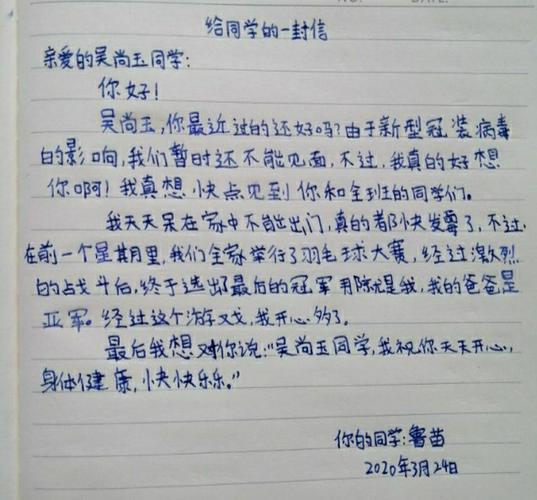 给同学的一封信
亲爱的吴尚玉同学:
你好!
吴尚玉,你最近过的还好吗?由于新型冠装病毒
的影响,我们暂时还不能见面,不过,我真的好想
你啊!我真想快点见到你和全班的同学们。
我天天呆在家中不能出门,真的都快发霉了,不过,
在前一个星期里,我们全家举行了羽毛球大赛,经过激烈
的战斗后,终于选出了最后的冠军那就是我,我的爸爸是
亚军。经过这个游戏,我开心多了。
最后我想对你说:“吴尚玉同学,我祝你天天开心,
身体健康,快快乐乐。”
你的同学:鲁苗
2020年3月24日